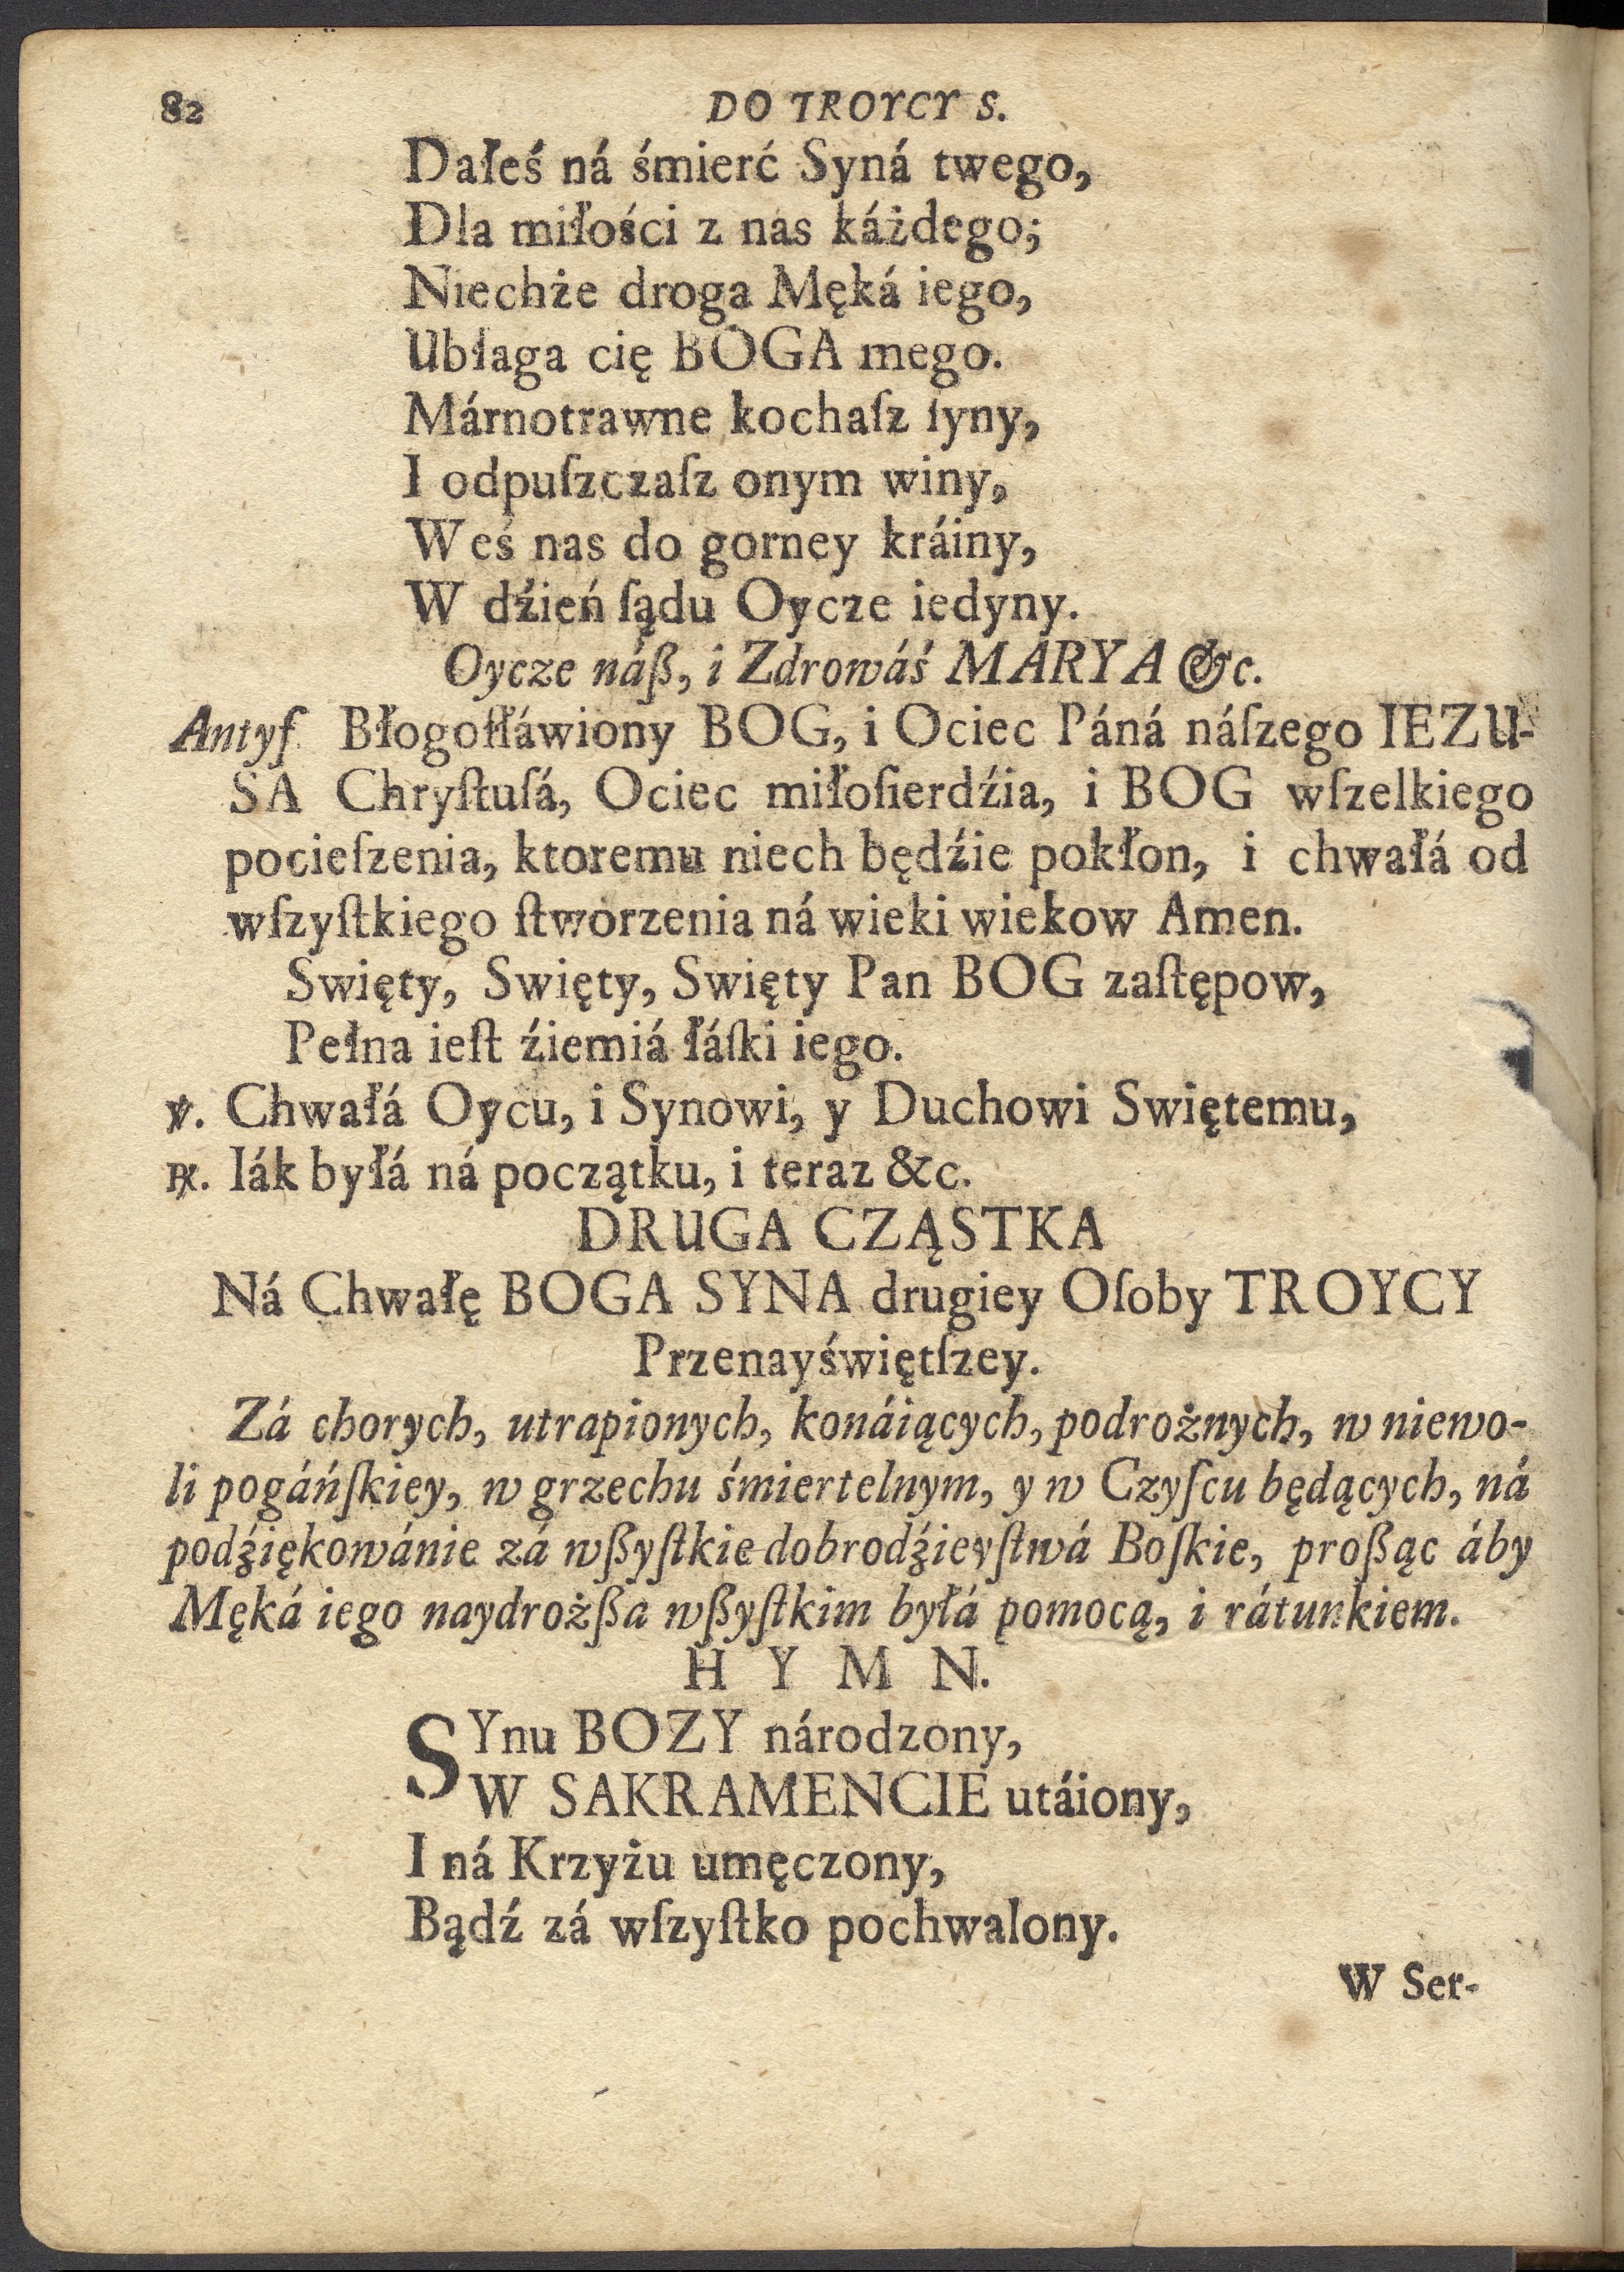 82 DO TROYCY S.
Dałeś ná śmierć Syná twego,
Dla miłości z nas káżdego;
Niechże droga Męká iego,
Ubłaga cię BOGA mego.
Márnotrawne kochaſz ſyny,
I odpuſzczaſz onym winy,
Weś nas do gorney kráiny,
W dźień ſądu Oycze iedyny.
Oycze náß, i Zdrowáś MARYA &c.
Antyf. Błogoſłáwiony BOG, i Ociec Páná náſzego IEZU-
SA Chryſtuſá, Ociec miłoſierdźia, i BOG wſzelkiego
pocieſzenia, ktoremu niech będźie pokłon, i chwałá od
wſzyſtkiego ſtworzenia ná wieki wiekow Amen.
Swięty, Swięty, Swięty Pan BOG zaſtępow,
Pełna ieſt źiemiá łáſki iego.
℣. Chwałá Oycu, i Synowi, y Duchowi Swiętemu,
℞. Iák byłá ná początku, i teraz &c.
DRUGA CZĄSTKA
Ná Chwałę BOGA SYNA drugiey Oſoby TROYCY
Przenayświętſzey.
Zá chorych, utrapionych, konáiących, podrożnych, w niewo-
li pogáńſkiey, w grzechu śmiertelnym, y w Czyſcu będących, ná
podźiękowánie zá wßyſtkie dobrodźieyſtwá Boſkie, proßąc áby
Męká iego naydrożßa wßyſtkim byłá pomocą, i rátunkiem.
H Y M N.
SYnu BOZY národzony,
W SAKRAMENCIE utáiony,
I ná Krzyżu umęczony,
Bądź zá wſzyſtko pochwalony.
W Ser-